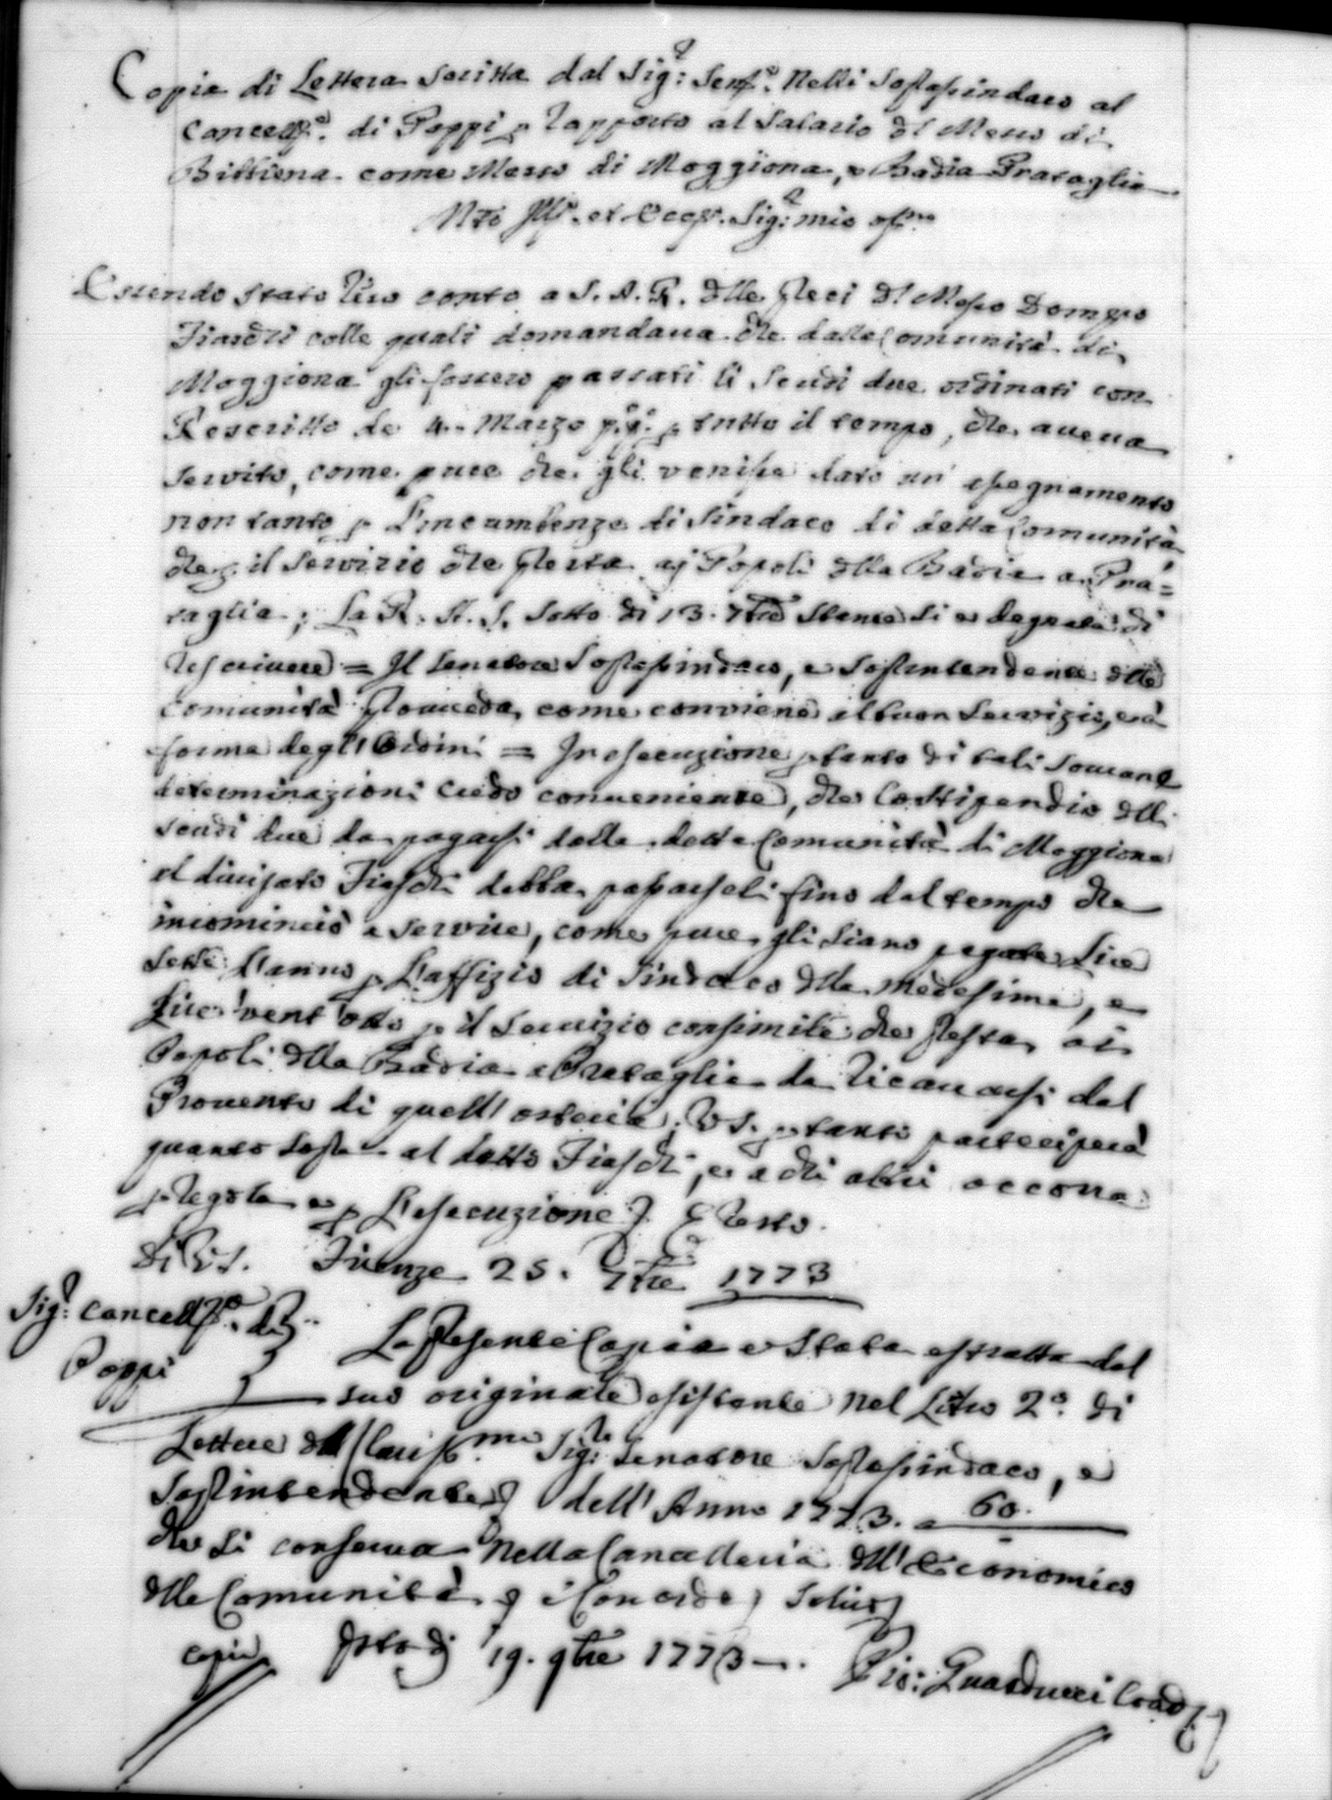 Copia di Lettera Scritta dal Sig:e Sen:e Nelli Soprasindaco al
Cancell:e di Poppi p rapporto al Salario dl Messo di
Bibbiena come Messo di Moggiona, e Badia Prataglia
Mto Ill:e et Ecc:e Sig:e mio
Essendo stato reso conto a S. A. R. dlle Preci dl Messo Domco
Fiaschi colle quali domandava che dalla Comunità di
Moggiona gli fossero passati li Scudi due ordinati con
Rescritto de 4. Marzo p:o p:o p tutto il tempo, che aveva
servito, come pure che gli venisse dato un' assegnamento
non tanto p l'incumbenza di Sindaco di detta Comunità
che p il servizio che presta aj Popoli dlla Badia a Pra=
taglia; La R. A. S. sotto di 13. 7bre stante si è degnata di
rescrivere = Il Senatore Soprasindaco, e Soprintendente dlle
Comunità Provveda come conviene al buon Servizio, e a
forma degl'Ordini = In esecuzione ptanto di tali Sovrane
determinazioni credo conveniente, che lo stipendio dlli
scudi due da pagarsi dalla detta Comunità di Moggiona
al divisato Fiaschi debba passarseli fino dal tempo che
incominciò a servire, come pure gli siano pagate Lire
sette l'anno p l'Uffizio di Sindaco dlla medesima, e
Lire vent'otto p il Servizio consimile che presta ai
Popoli dlla Badia a Prataglia da ricavarsi dal
Provento di quell'osteria; VS. ptanto parteciperà
quanto sopra al detto Fiaschi, e a chi altri occorra
p regola e p l'esecuzione E resto
di VS. Firenze 25. 7bre 1773
Sig:e Cancell:e di
Poppi
La presente Copia è stata estratta dal
suo originale esistente nel Libro 2.o di
Lettere dll Clariss.mo Sig:re Senatore Soprasindaco, e
Soprintendente dell'Anno 1773. a 60.
che si conserva nella Cancelleria dll'Economico
dlle Comunità, e Concorda, Salvis
copia Questo dì 19. 9bre 1773
Gio: Guarducci Coad:e